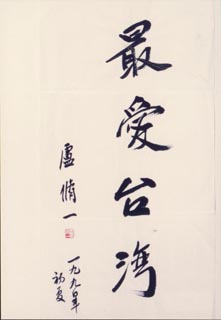 最愛台湾
盧脩一
一九九〇年
初夏